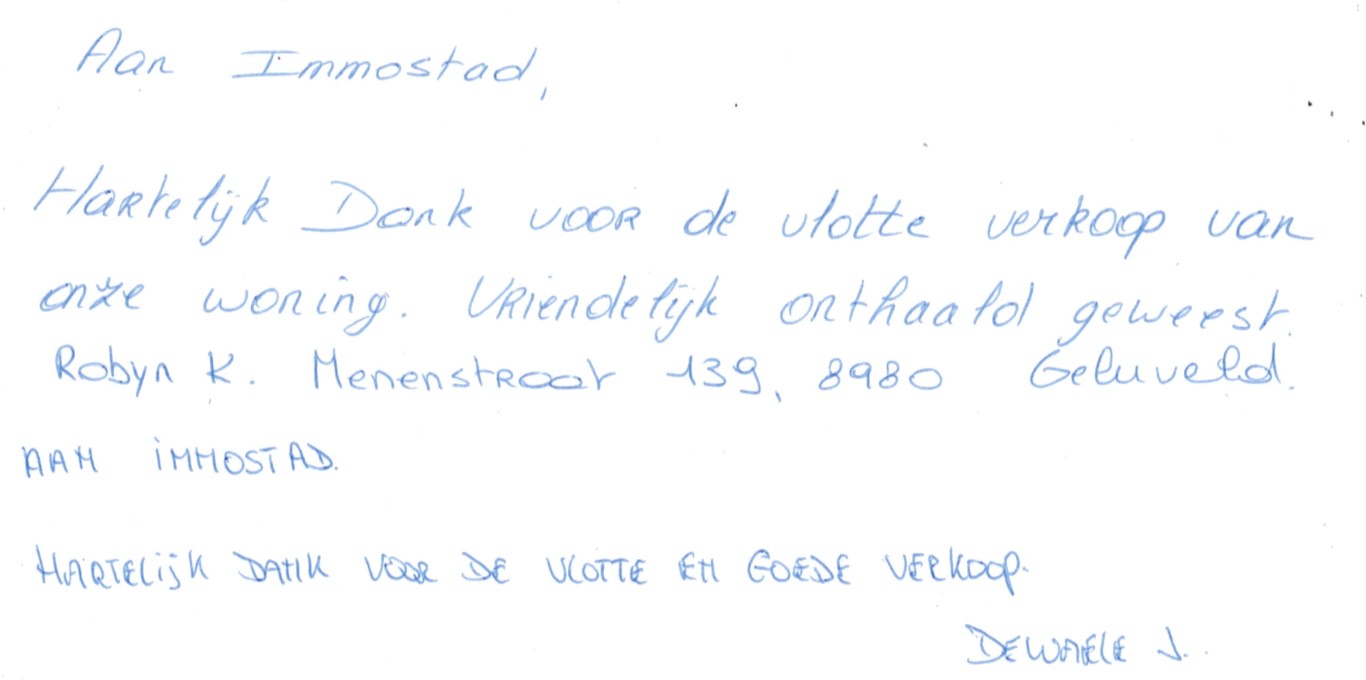 Aan Immostad,
Hartelijk Dank voor de vlotte verkoop van
onze woning. Vriendelijk onthaald geweest.
Robyn K. Menenstraat 139, 8980 Geluveld.
AAN iMMOSTAD.
HARTELijK DANK VOOR DE VLOTTE EN GOEDE VERKOOP.
DEWAELE J.